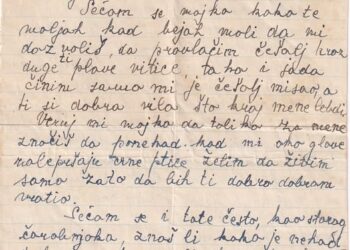 Sećam se majko kako te
moljah kad bejah moli da mi
dozvoliš, da provlačim češalj kroz
duge ti plave vitice, tako i sada
činim samo mi je češalj misao, a
ti si dobra vila što kraj mene lebdi.
Veruj mi majko da toliko za mene
značiš da ponekad kad mi oko glave
nalepršaju crne ptice želim da živim
samo zato da bih ti dobro dobrim
vratio.
Sećam se i tate često, kao starog
čarobnjaka, znaš li kako je nekad